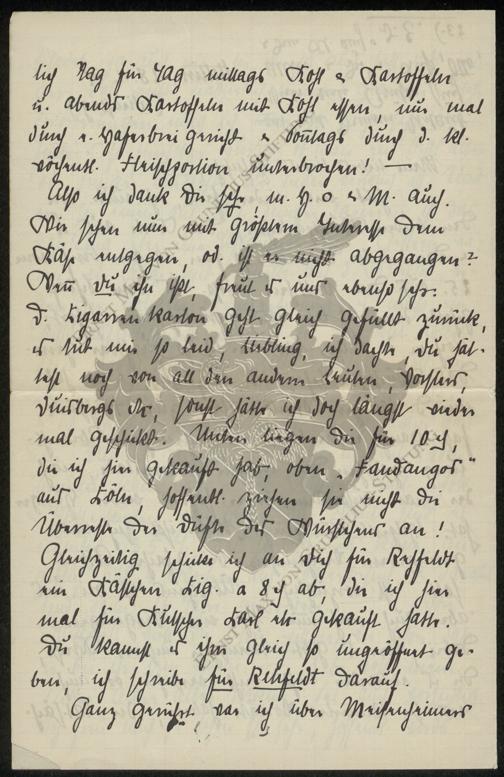 lich Tag für Tag mittags Kohl & Kartoffeln
u. abends Kartoffeln mit Kohl essen, nur mal
durch e. Haferbreigericht & Sonntags durch d. kl.
wöchentl. Fleischportion unterbrochen! —
Also ich dank Dir sehr, m. H. O & M. auch.
Wir sehen nun mit größtem Interesse dem
Käse entgegen, od. ist er nicht abgegangen?
Wenn Du ihn ißt, freut es uns ebenso sehr.
D. Zigarrenkarton geht gleich gefüllt zurück,
es tut mir so leid, Liebling, ich dachte, Du hät-
test noch von all den andern Leuten, Vorsters,
Duisbergs etc, sonst hätte ich doch längst wieder
mal geschickt. Unten liegen die für 10 ₰,
die ich hier gekauft hab, oben „Fandangos"
aus Köln, hoffentl. ziehen sie nicht die
Überreste der Düfte des Würstchens an!
Gleichzeitig schicke ich an Dich für Rehfeldt
ein Kästchen Zig. a 8 ₰ ab, die ich hier
mal für Kutscher Karl etc gekauft hatte.
Du kannst es ihm gleich so ungeöffnet ge-
ben, ich schreibe für Rehfeldt darauf.
Ganz gerührt war ich über Meisenheimers